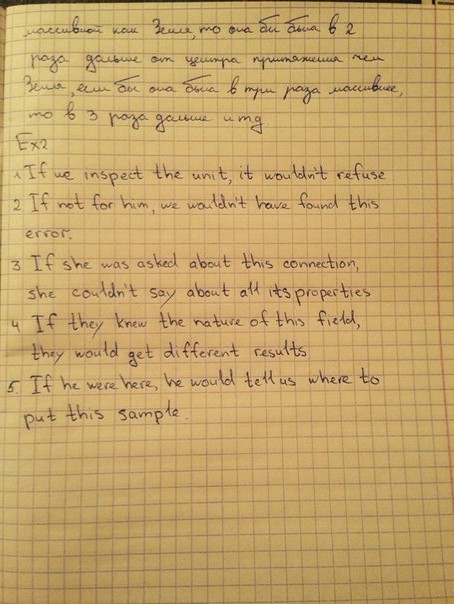 массивной как Земля, то она бы была в 2
раза дальше от центра притяжения чем
Земля, если бы она была в три раза массивнее,
то в 3 раза дальше итд
Ex2
1 If we inspect the unit, it wouldn't refuse
2 If not for him, we wouldn't have found this
error.
3 If she was asked about this connection,
she couldn't say about all its properties
4 If they knew the nature of this field,
they would get different results
5. If he were here, he would tell us where to
put this sample.